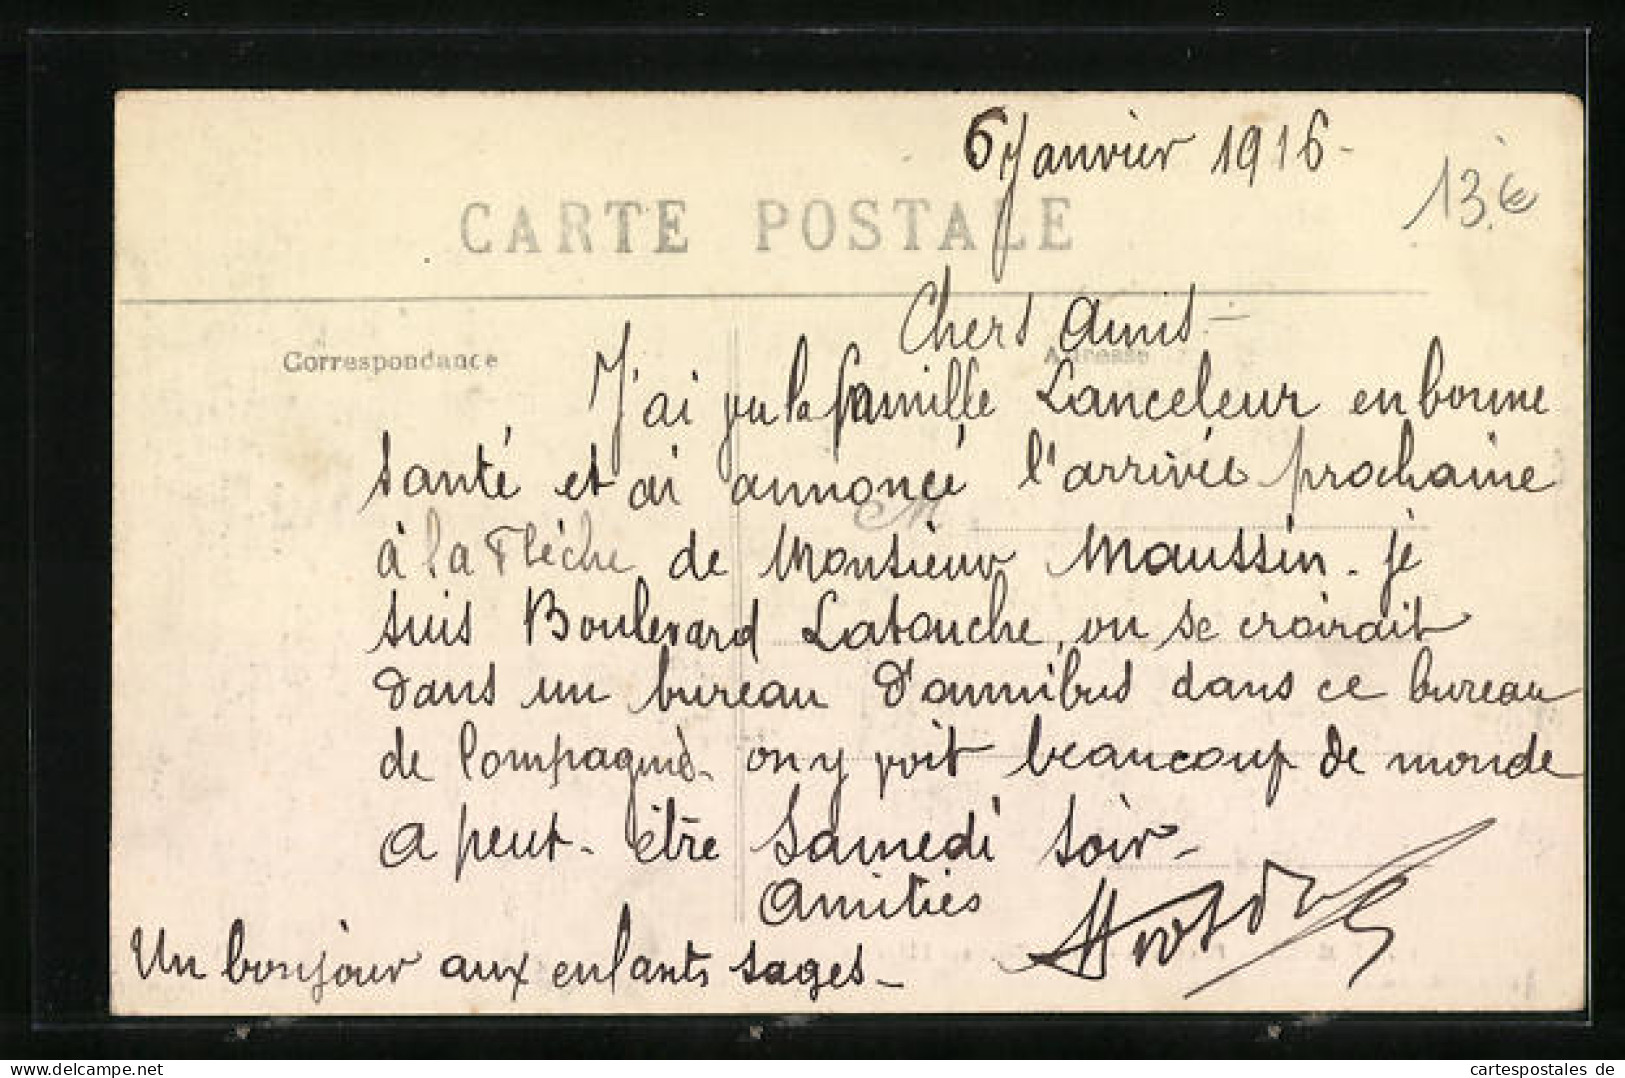 6 Janvier 1916-
13.€
CARTE POSTALE
Chers Amis-
Correspondance
Adresse
J'ai vu la famille Lanceleur en bonne
santé et ai annoncé l'arrivée prochaine
à la Flèche de Monsieur Maussin. je
suis Boulevard Latouche, on se croirait
dans un bureau d'omnibus dans ce bureau
de Compagnie. on y voit beaucoup de monde
a peut-être Samedi soir-
Amitiés
Un bonjour aux enfants sages-
cartespostales de